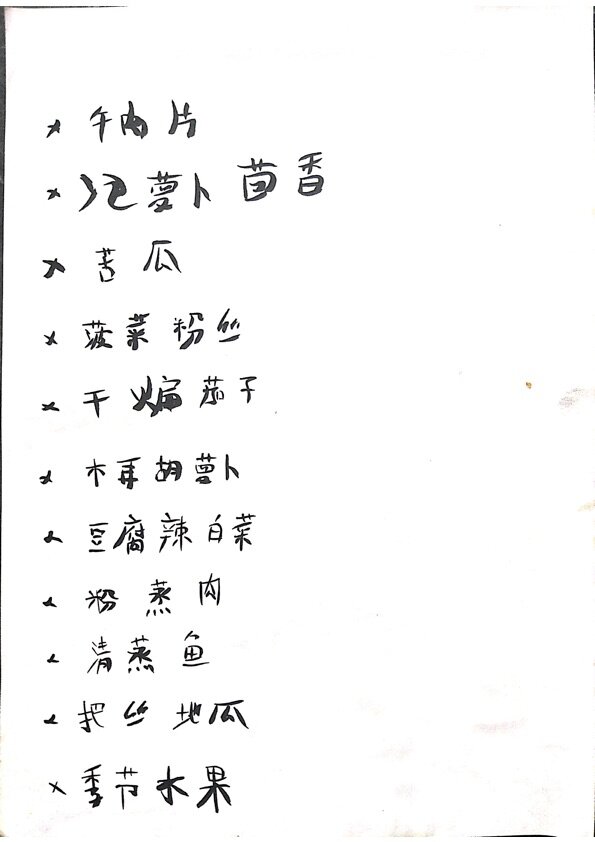 × 午肉片
× 泡萝卜 茴香
× 苦瓜
× 菠菜 粉丝
× 干煸茄子
× 木耳胡萝卜
× 豆腐辣白菜
× 粉蒸肉
× 清蒸鱼
× 把丝地瓜
× 季节水果